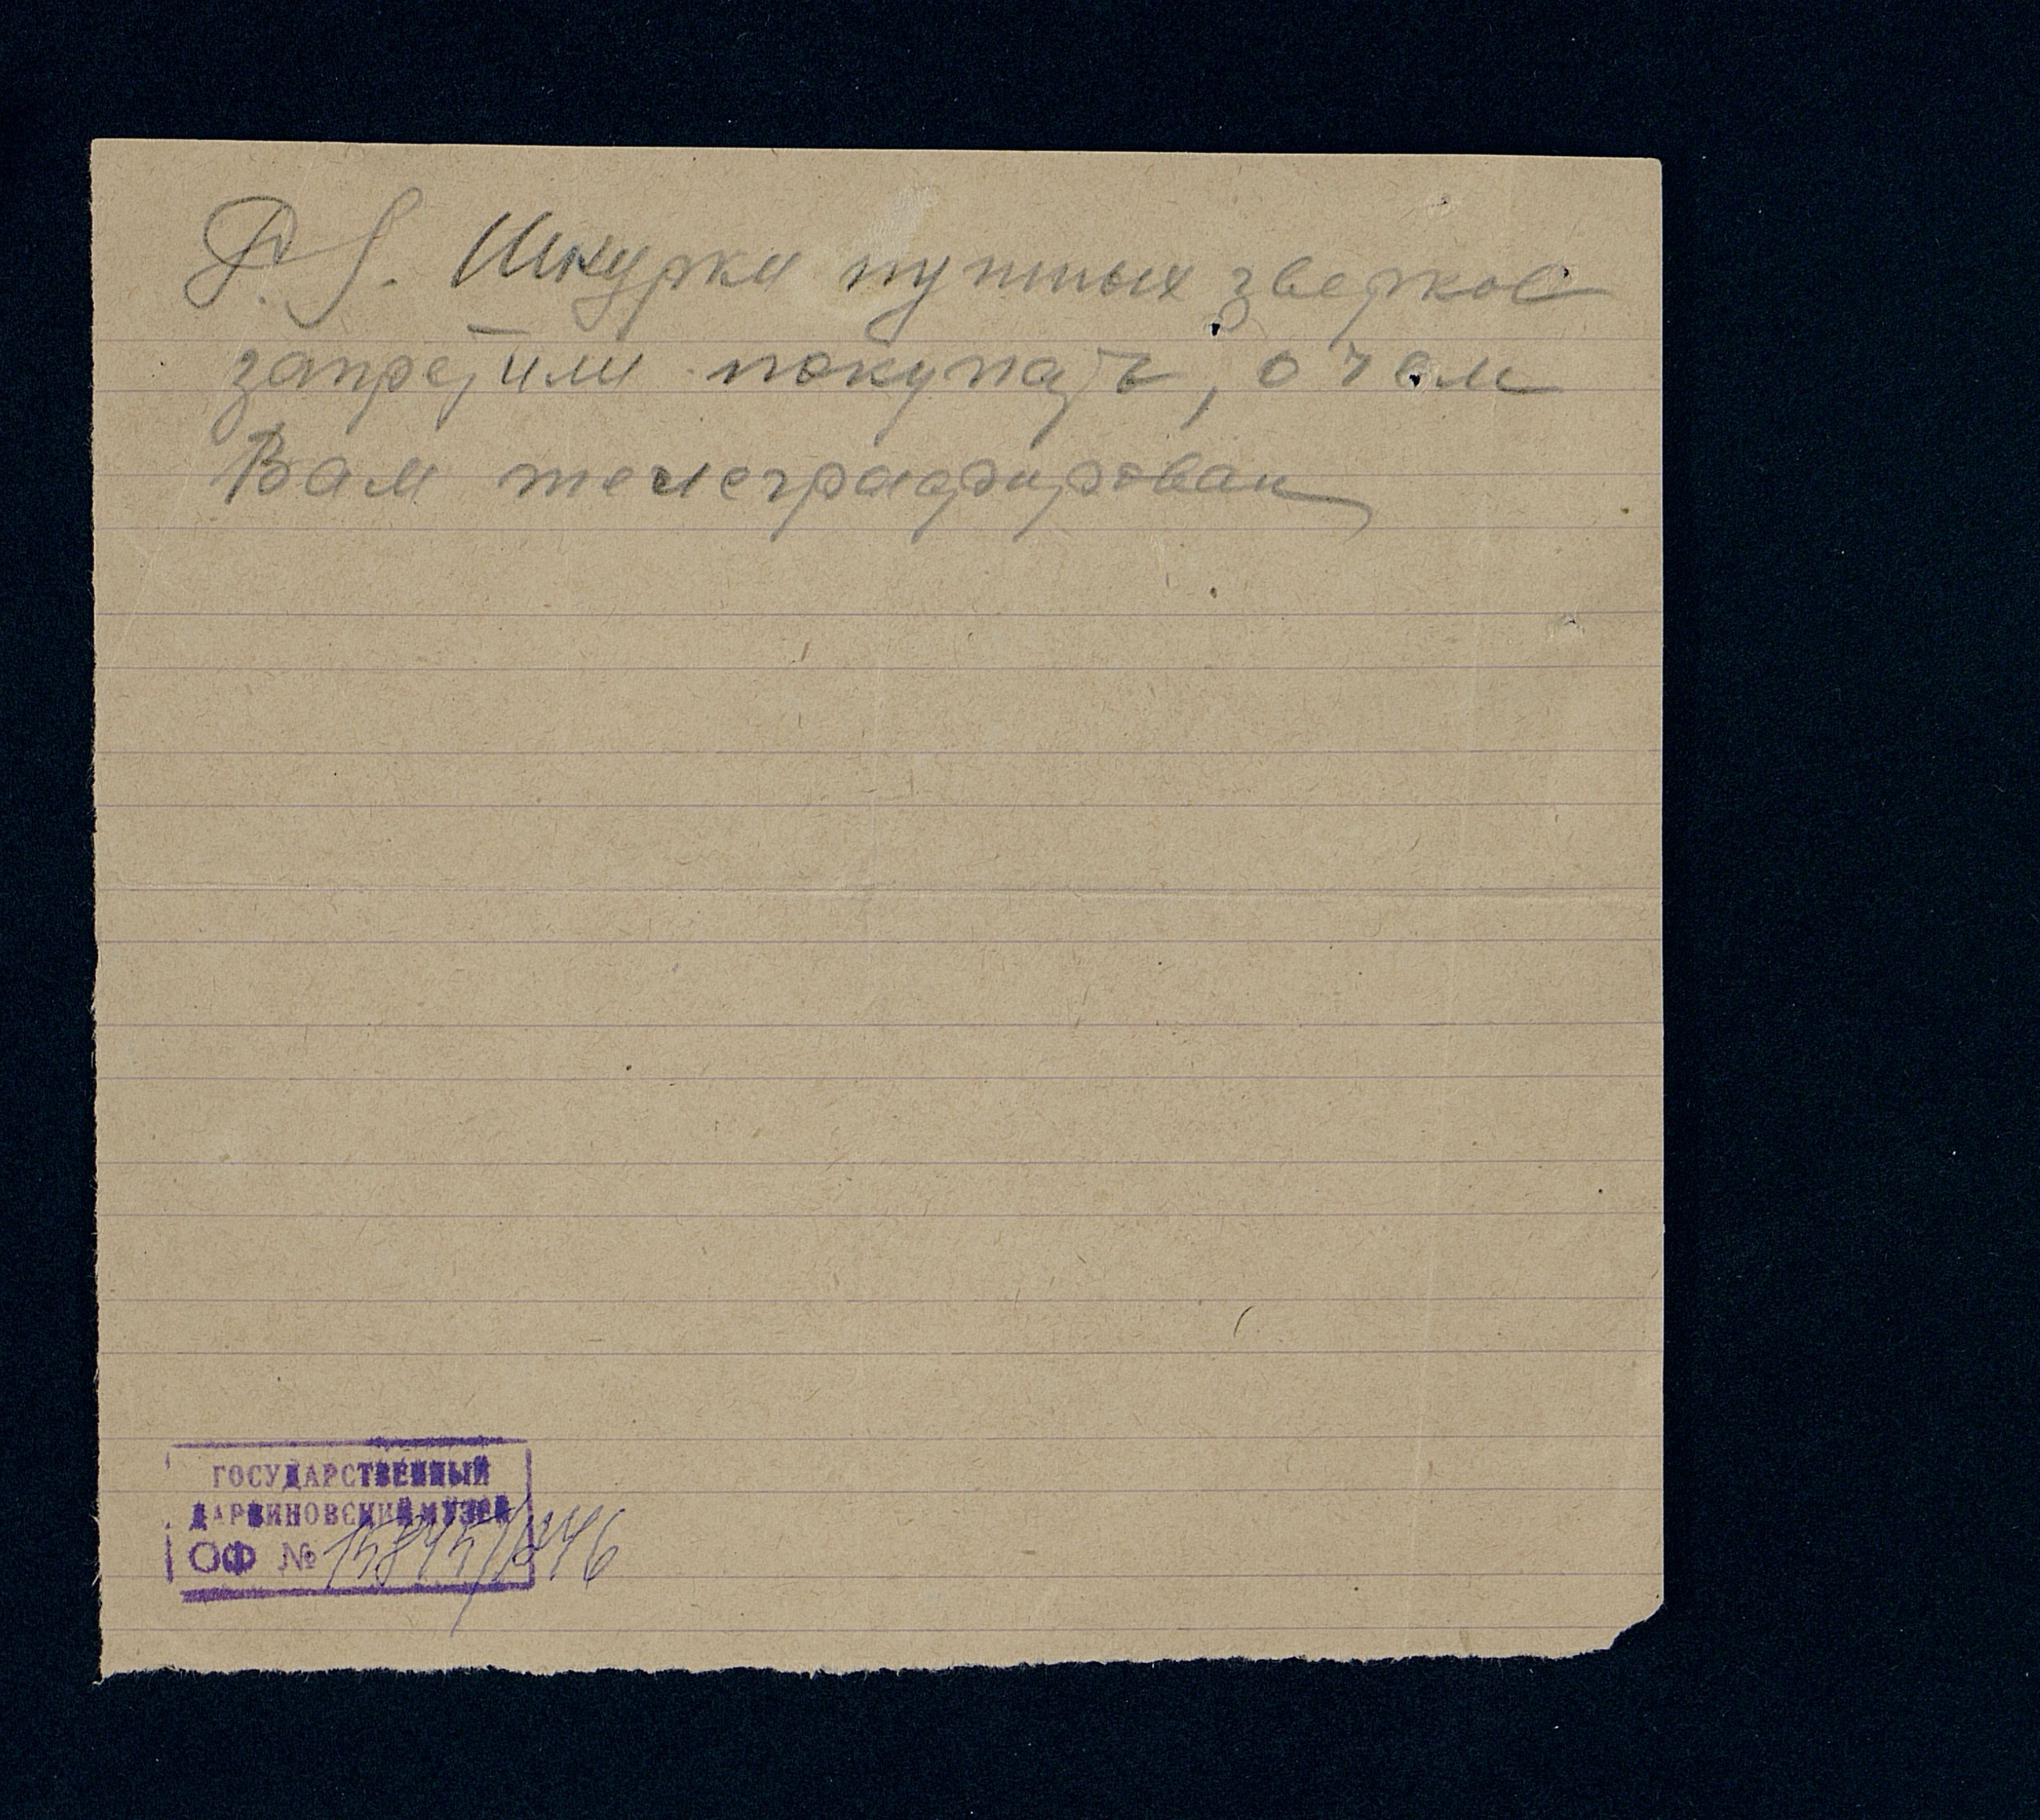 P.S. Шкурки пушных зверков
запретили покупать, о чем
Вам телеграфирован
ГОСУДАРСТВЕННЫЙ
ДАРВИНОВСКИЙ МУЗЕЙ
ОФ №